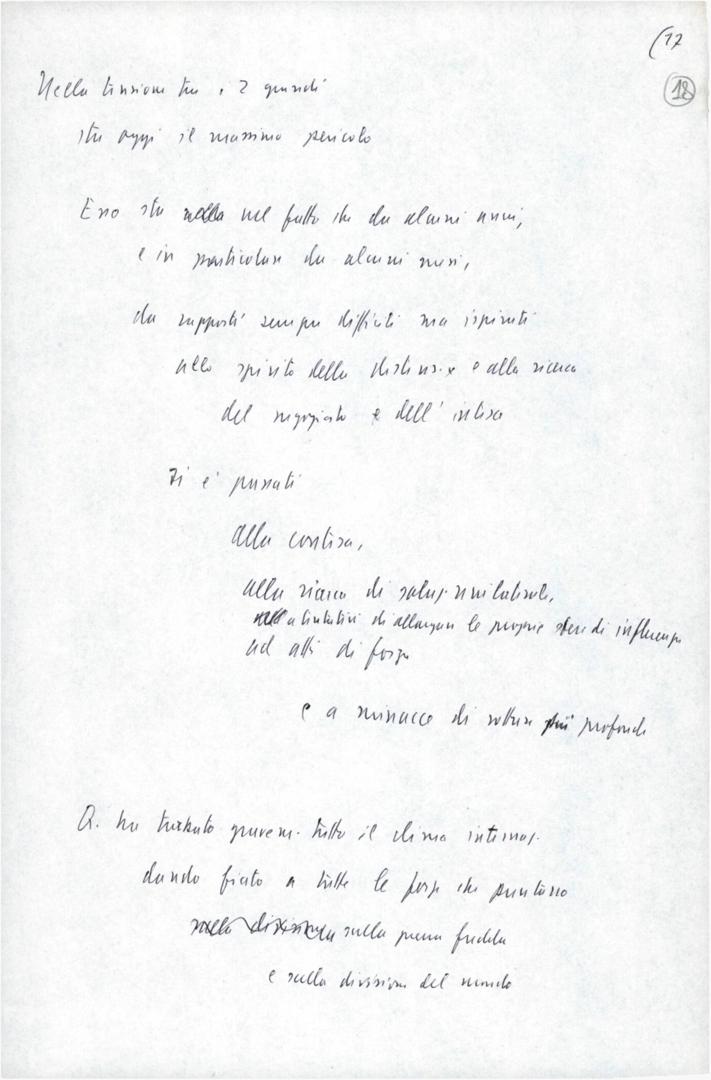 (17
18
Nella tensione tra i 2 grandi
sta oggi il massimo pericolo
Esso sta nella nel fatto che da alcuni anni,
e in particolare da alcuni mesi,
da rapporti sempre difficili ma ispirati
allo spirito della distens.e e alla ricerca
del negoziato e dell'intesa
si è passati
alla contesa,
alla ricerca di soluz. unilaterali,
a tentativi di allargare le proprie sfere di influenza
ad atti di forza
e a minacce di rotture più profonde
Q. ha turbato gravem. tutto il clima internaz.
dando fiato a tutte le forze che puntano
sulla guerra fredda
e sulla divisione del mondo